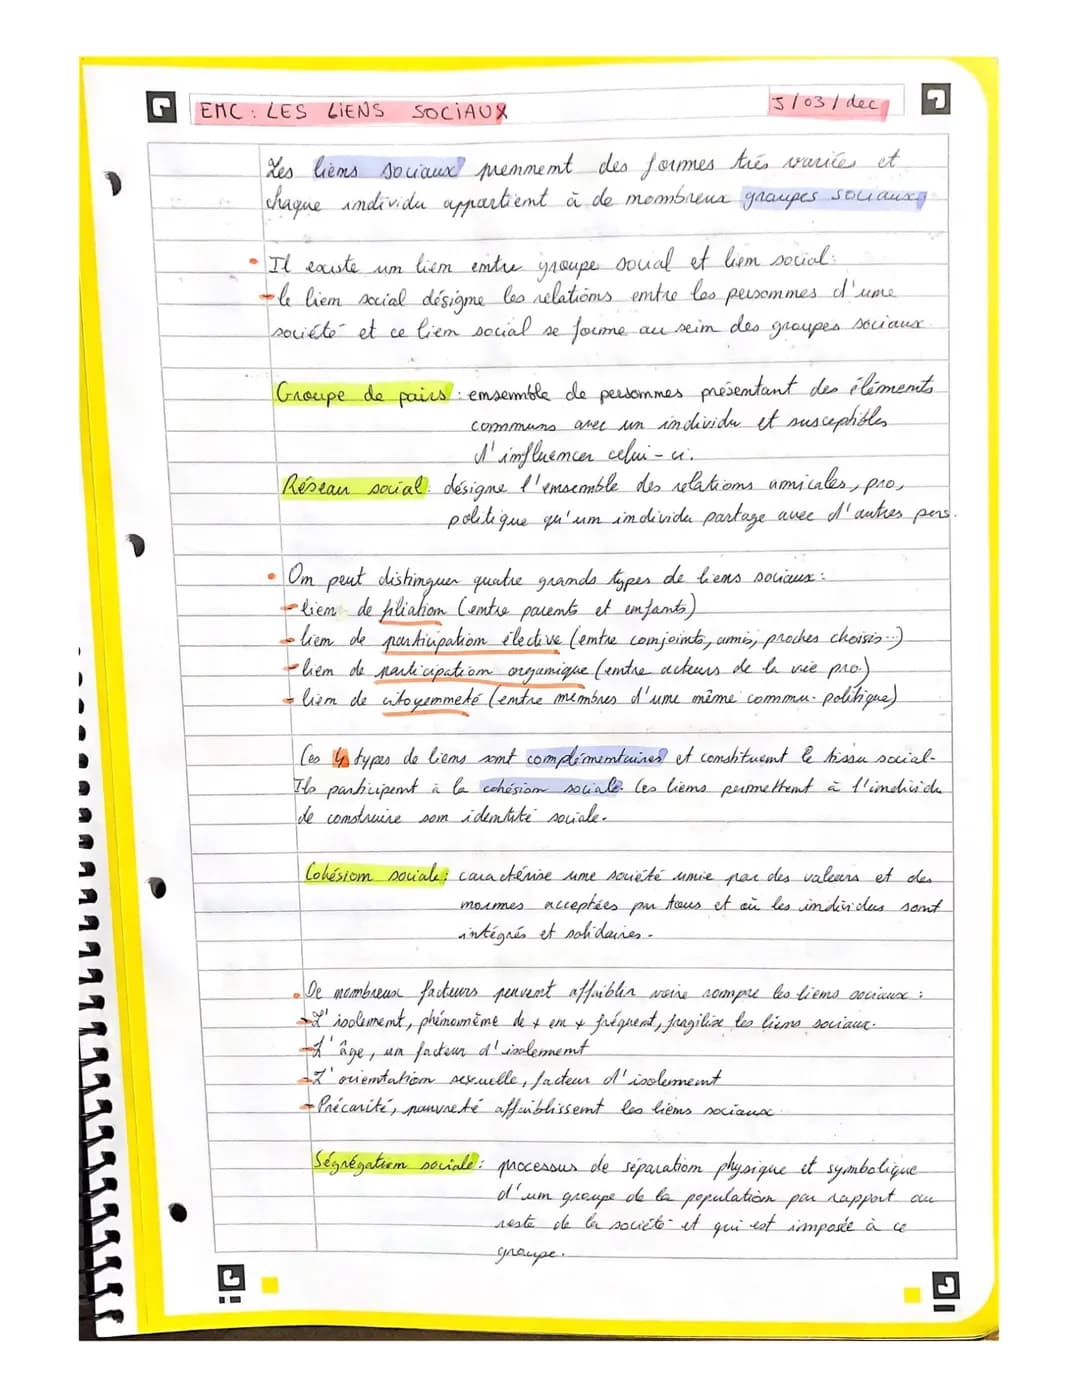 EMC : LES LIENS SOCIAUX
5/03/dec
Les liens sociaux prennent des formes très variées et
chaque individu appartient à de nombreux groupes sociaux
• Il existe un lien entre groupe social et lien social:
- le lien social désigne les relations entre les personnes d'une
société et ce lien social se forme au sein des groupes sociaux.
Groupe de pairs : ensemble de personnes présentant des éléments
communs avec un individu et susceptibles
d'influencer celui-ci.
Réseau social : désigne l'ensemble des relations amicales, pro,
politique qu'un individu partage avec d'autres pers.
• On peut distinguer quatre grands types de liens sociaux :
- lien de filiation (entre parents et enfants)
- lien de participation élective (entre conjoints, amis, proches choisis...)
- lien de participation organique (entre acteurs de la vie pro.)
- lien de citoyenneté (entre membres d'une même commu. politique)
Ces 4 types de liens sont complémentaires et constituent le tissu social.
Ils participent à la cohésion sociale. Ces liens permettent à l'individu
de construire son identité sociale.
Cohésion sociale : caractérise une société unie par des valeurs et des
normes acceptées par tous et où les individus sont
intégrés et solidaires.
• De nombreux facteurs peuvent affaiblir voire rompre les liens sociaux :
- L'isolement, phénomène de + en + fréquent, fragilise les liens sociaux.
- L'âge, un facteur d'isolement
- L'orientation sexuelle, facteur d'isolement
- Précarité, pauvreté affaiblissent les liens sociaux.
Ségrégation sociale : processus de séparation physique et symbolique
d'un groupe de la population par rapport au
reste de la société et qui est imposée à ce
groupe.